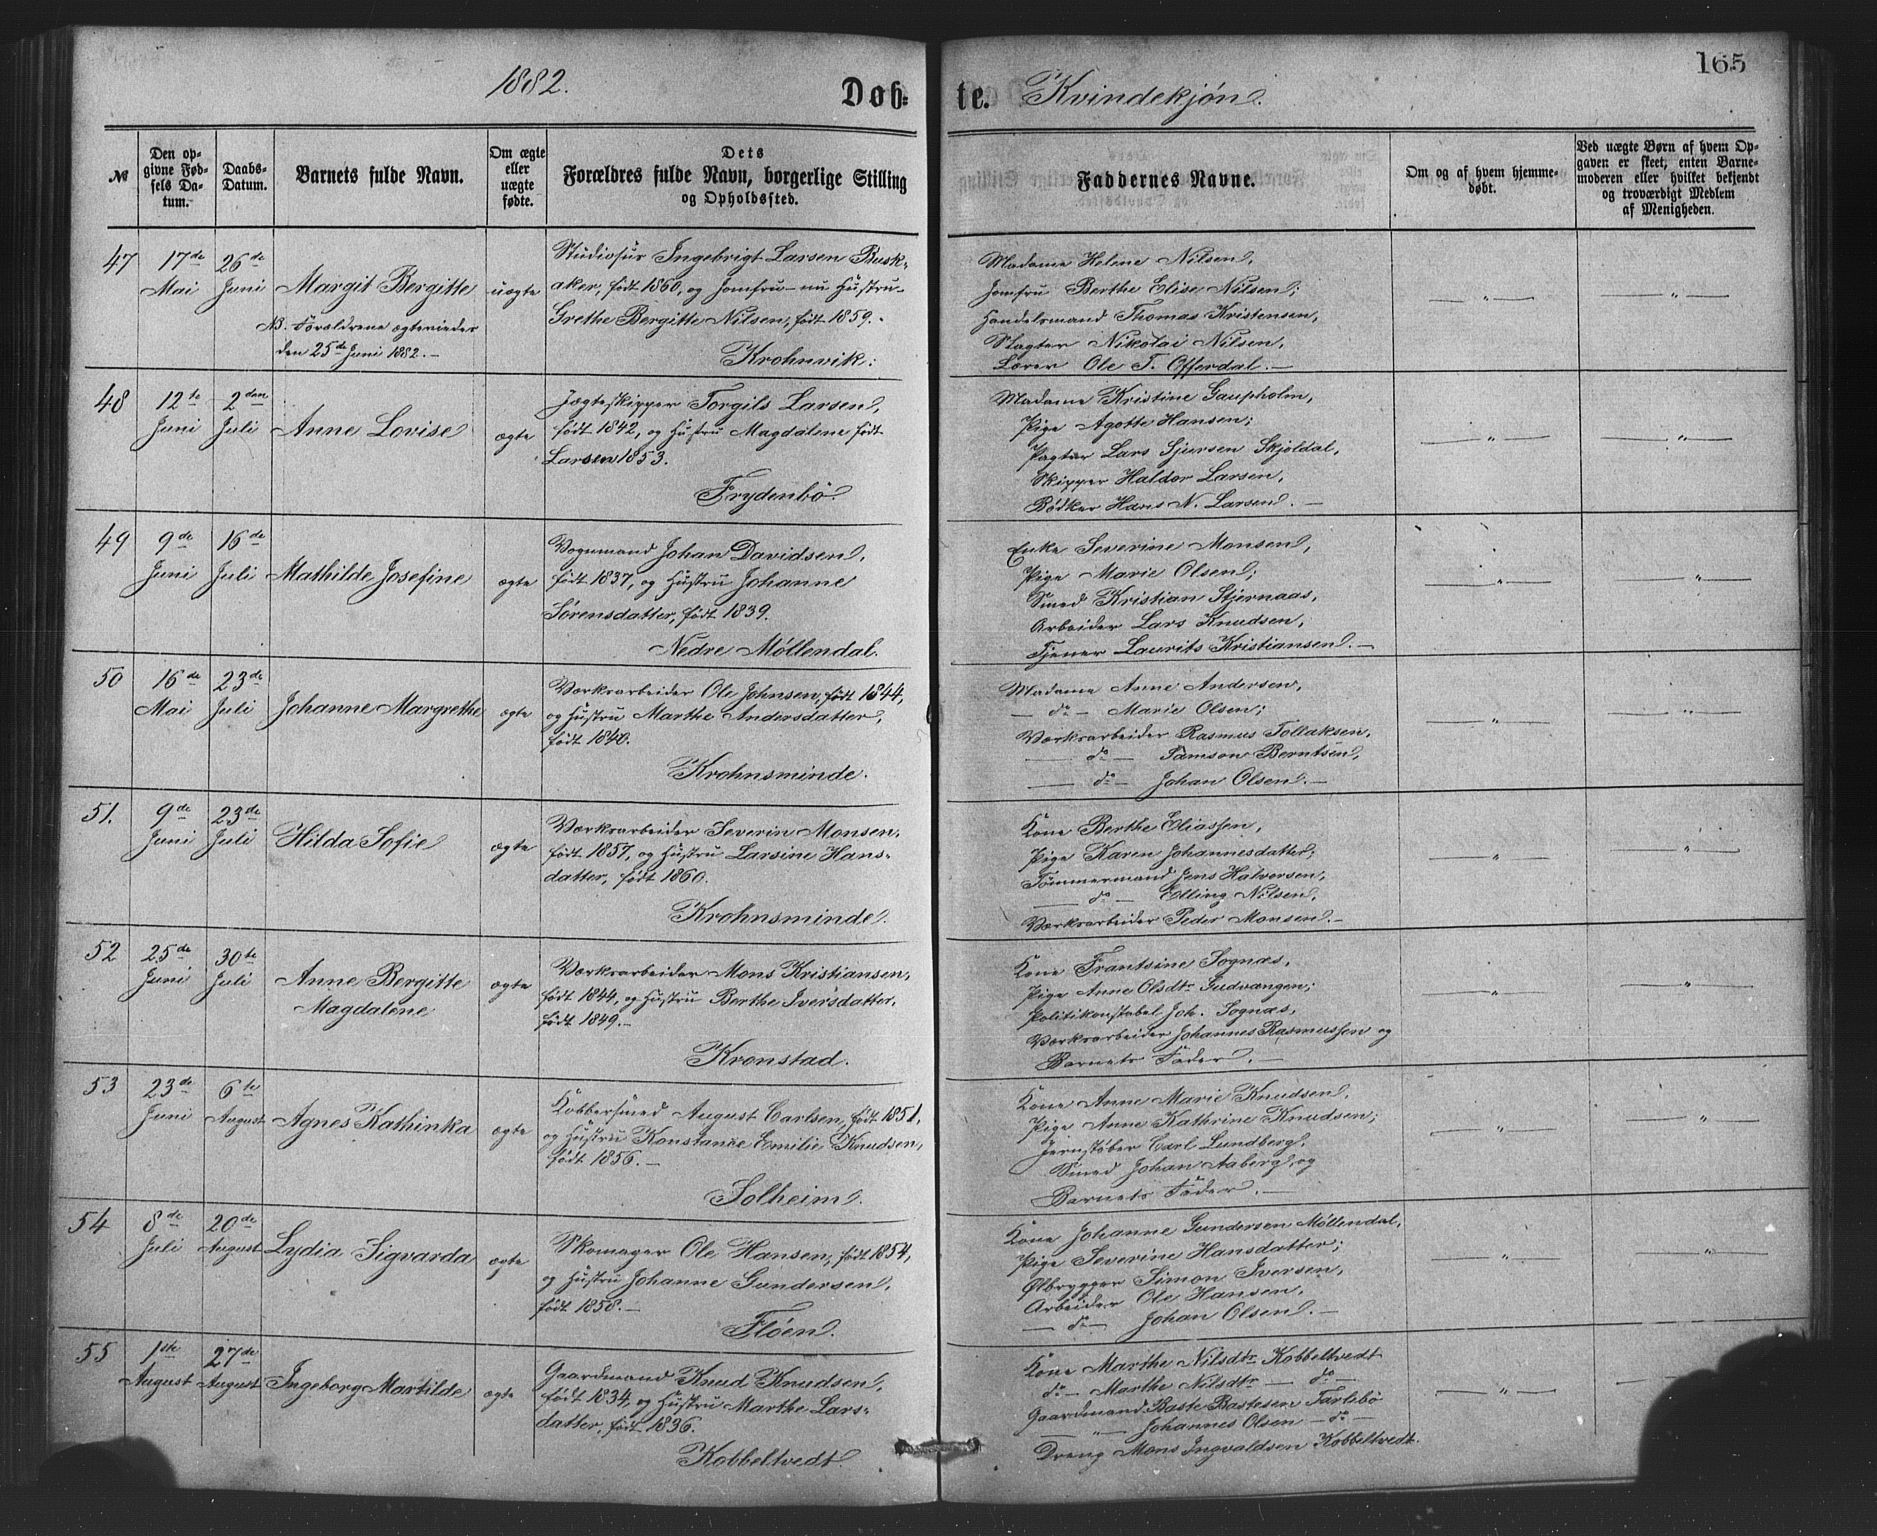 1882.
Døb-
te. Kvindekjøn.
165
№
Den opgivne Fødsels Datum.
Daabs-Datum.
Barnets fulde Navn.
Om ægte eller uægte fødte.
Dets Forældres fulde Navn, borgerlige Stilling og Opholdssted.
Faddernes Navne.
Om og af hvem hjemmedøbt.
Ved uægte Børn af hvem Opgaven er skeet, enten Barnemoderen eller hvilket bekjendt og troværdigt Medlem af Menigheden.
47
17de Mai
26de Juni
Margit Bergitte
NB. Forældrene ægteviedes
den 25de Juni 1882.-
uægte
Studiosus Ingebrigt Larsen Busk-
aker, født 1860, og Jomfru - nu Hustru -
Grethe Bergitte Nilsen, født 1859.-
Krohnvik.
Madame Helene Nilsen,
Jomfru Berthe Elise Nilsen;
Handelsmand Thomas Kristensen,
Slagter Nikolai Nilsen,
Lærer Ole T. Offerdal.-
48
12te Juni
2den Juli
Anne Lovise
ægte
Jægteskipper Torgils Larsen,
født 1842, og Hustru Magdalene født
Larsen 1853.
Frydenbö
Madame Kristine Gaupholm,
Pige Agotte Hansen;
Pagter Lars Sjursen Skjoldal,
Skipper Haldor Larsen,
Bödker Hans N. Larsen.-
49
9de Juni
16de Juli
Mathilde Josefine
ægte
Vognmand Johan Davidsen,
født 1837, og Hustru Johanne
Sörensdatter, født 1839.
Nedre Möllendal.
Enke Severine Monsen,
Pige Marie Olsen;
Smed Kristian Stjernaas,
Arbeider Lars Knudsen,
Tjener Laurits Kristiansen.-
50
16de Mai
23de Juli
Johanne Margrethe
ægte
Værksarbeider Ole Johnsen, født 1844,
og Hustru Marthe Andersdatter,
født 1840.
Krohnsminde.
Madame Anne Andersen,
- do - Marie Olsen;
Værksarbeider Rasmus Tollaksen,
- do - Samson Berntsen,
- do - Johan Olsen.-
51.
9de Juni
23de Juli
Hilda Sofie
ægte
Værksarbeider Severin Monsen,
født 1857, og Hustru Larsine Hans-
datter, født 1860.
Krohnsminde.
Kone Berthe Eliassen,
Pige Karen Johannesdatter;
Tömmermand Jens Halvorsen,
- do - Elling Nilsen,
Værksarbeider Peder Monsen.-
52
25de Juni
30te Juli
Anne Bergitte
Magdalene
ægte
Værksarbeider Mons Kristiansen,
født 1844, og Hustru Berthe Iversdatter,
født 1849.-
Kronstad.
Kone Frantsine Sognæs,
Pige Anne Olsdtr Gudvangen;
Politikonstabel Joh. Sognæs,
Værksarbeider Johannes Rasmussen og
Barnets Fader.-
53
23de Juni
6te August
Agnes Kathinka
ægte
Kobbersmed August Carlsen, født 1851,
og Hustru Konstance Emilie Knudsen,
født 1856.-
Solheim.
Kone Anne Marie Knudsen,
Pige Anne Kathrine Knudsen;
Jernstöber Carl Lundberg,
Smed Johan Aaberg, og
Barnets Fader.-
54
8de Juli
20de August
Lydia Sigvarda
ægte
Skomager Ole Hansen, født 1854,
og Hustru Johanne Gundersen,
født 1858.-
Flöen.
Kone Johanne Gundersen Möllendal,
Pige Severine Hansdatter;
Ølbrygger Simon Iversen,
Arbeider Ole Hansen,
- do - Johan Olsen.-
55
1ste August
27de August
Ingeborg Martilde
ægte
Gaardmand Knud Knudsen,
født 1834, og Hustru Marthe Lars-
datter, født 1836.
Kobbeltvedt.
Kone Marthe Nilsdtr Kobbeltvedt
do - Marthe Nilsdtr - do -
Gaardmand Baste Bastesen Tarlebö
- " - Johannes Olsen - do -
Dreng Mons Ingvaldsen Kobbeltvedt.